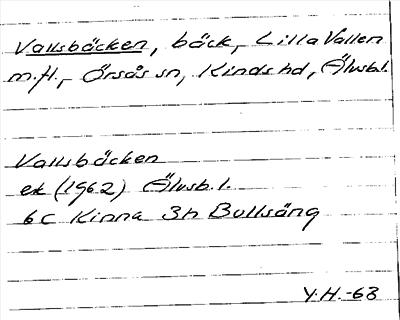 Vallsbäcken, bäck, Lilla Vallen
m.fl., Örsås sn, Kinds hd, Älvsb.l.
Vallsbäcken
ek (1962) Älvsb.l.
6C Kinna 3h Bullsäng
Y.H.-63